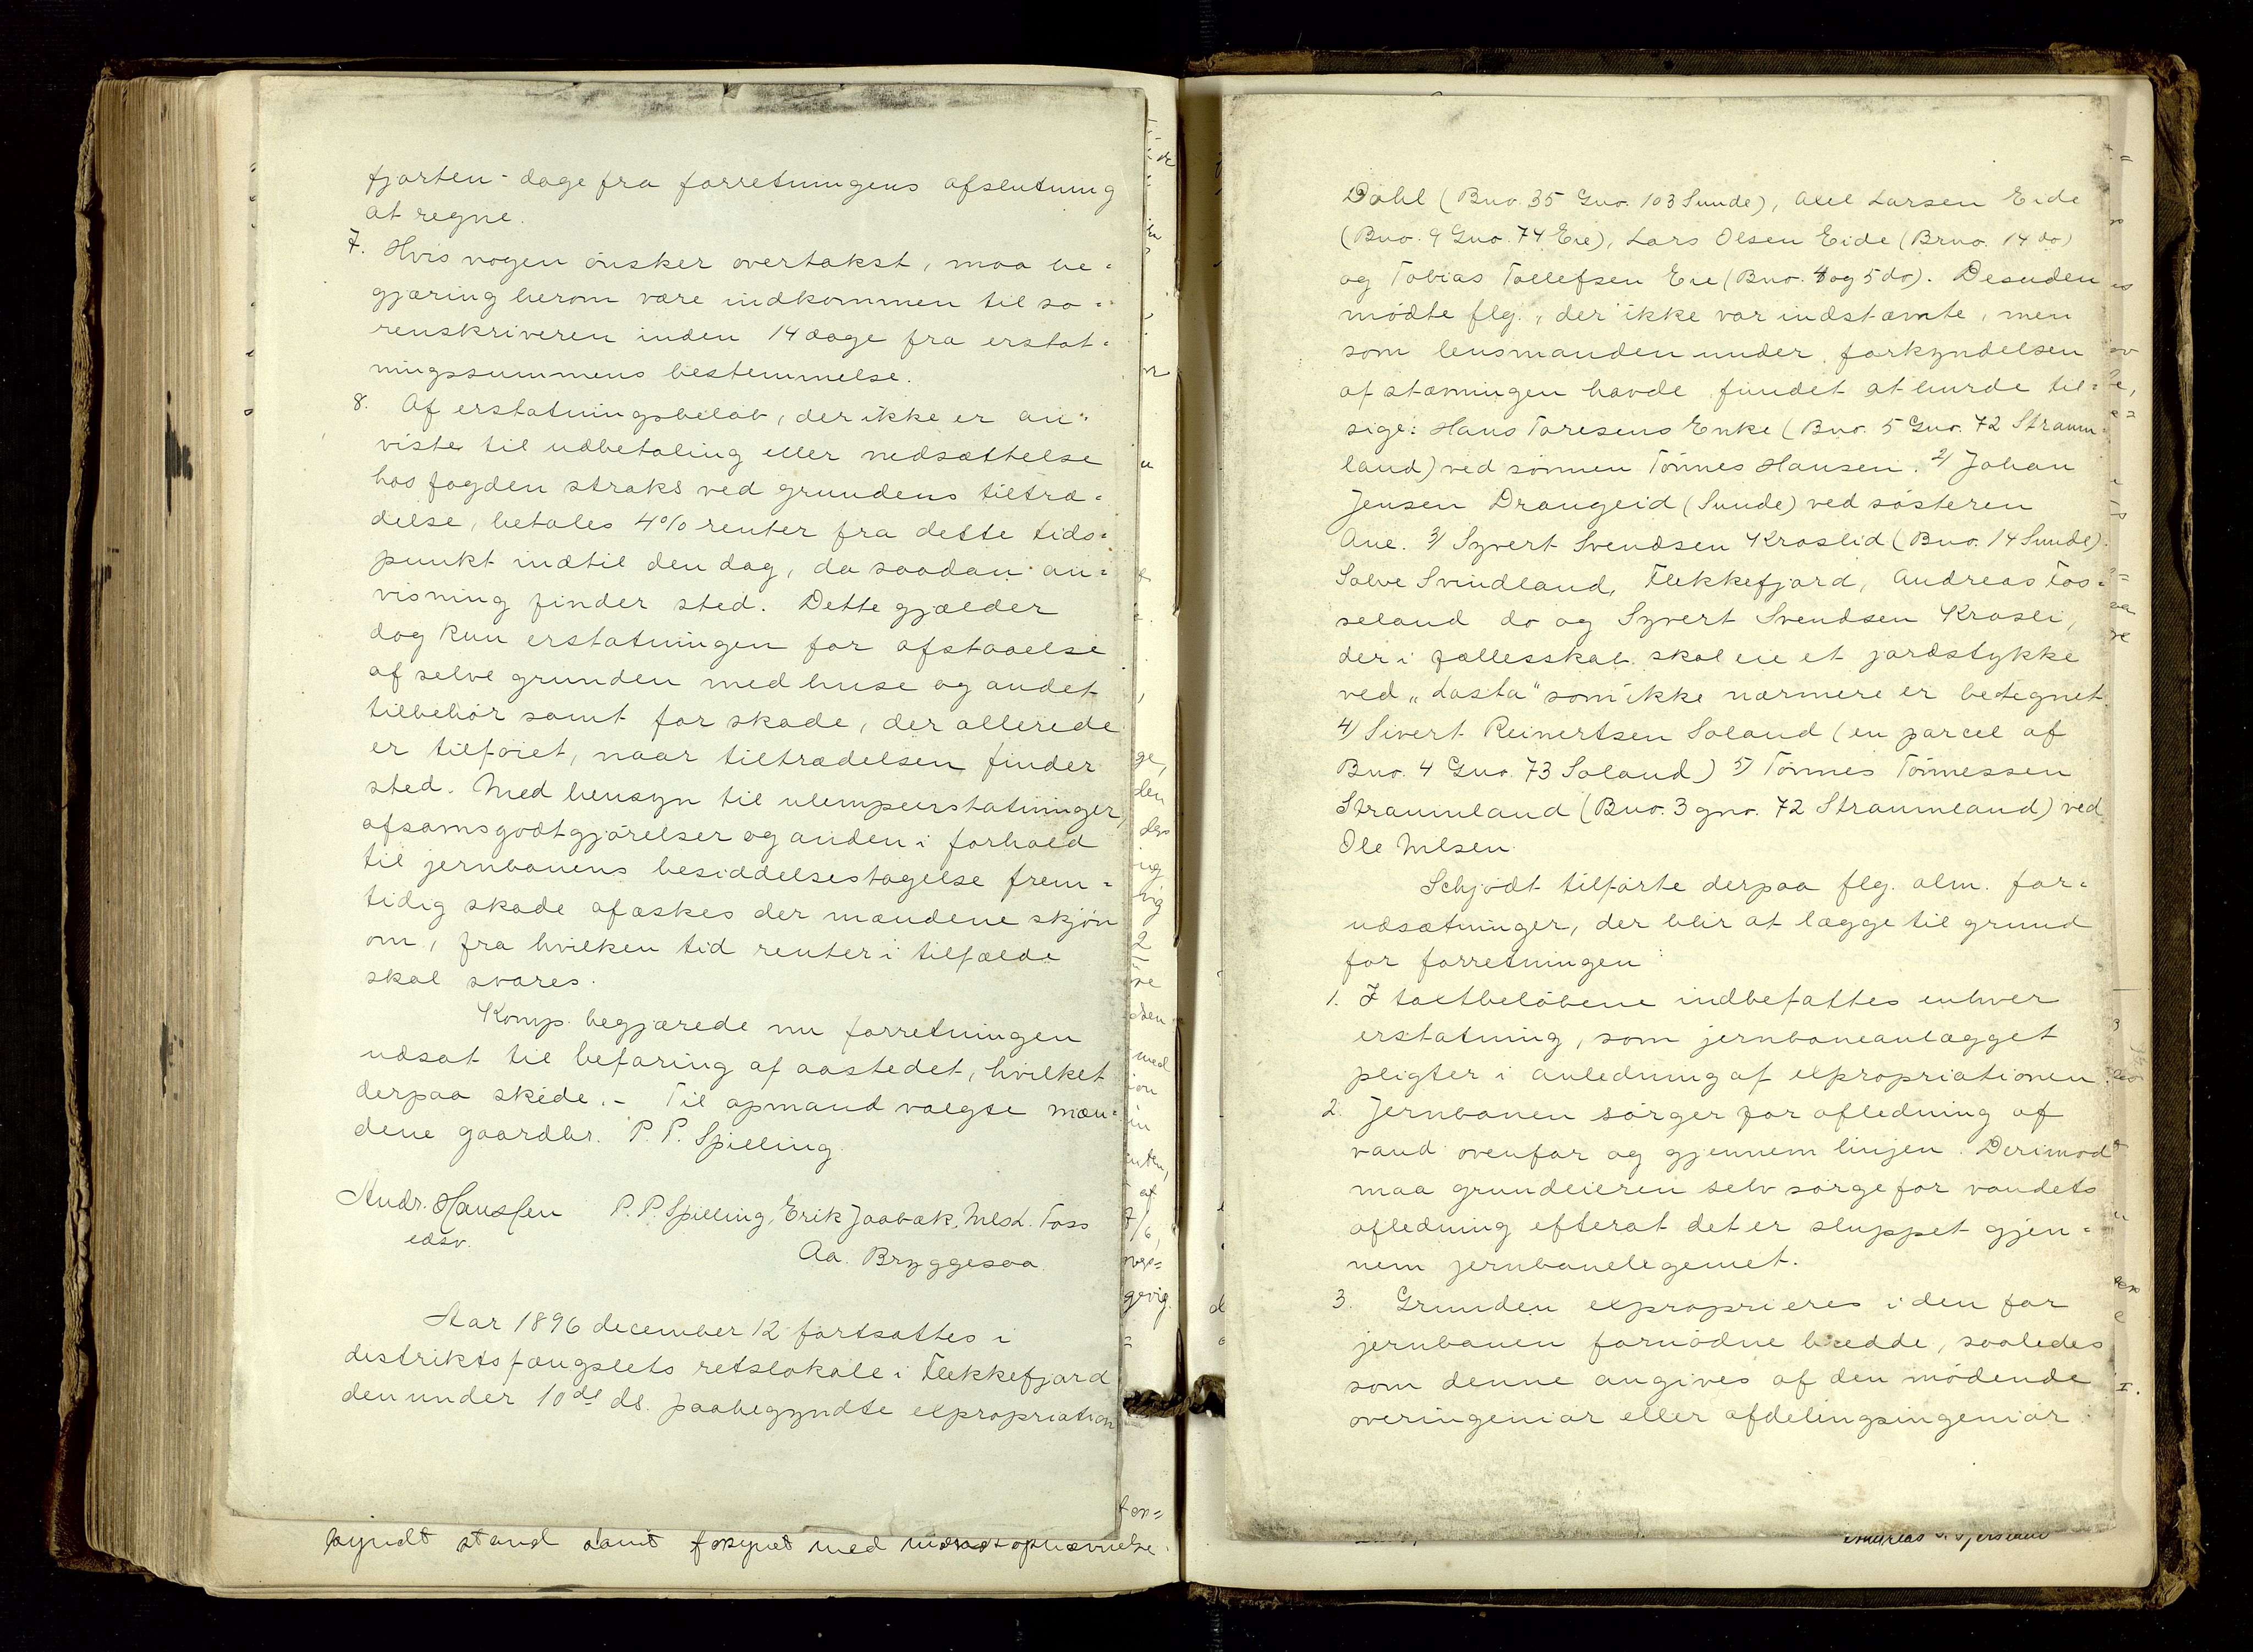 fjorten dage fra forretningens afslutning
at regne.
7. Hvis nogen ønsker overtakst, maa be=
gjæring herom være indkommen til so=
renskriveren inden 14 dage fra erstat=
ningssummens bestemmelse.
8. Af erstatningsbeløb, der ikke er an=
viste til udbetaling eller nedsættelse
hos fogden straks ved grundens tiltræ=
delse, betales 4% renter fra dette tids=
punkt indtil den dag, da saadan an=
visning finder sted. Dette gjælder
dog kun erstatningen for afstaaelse
af selve grunden med huse og andet
tilbehør samt for skade, der allerede
er tilføiet, naar tiltrædelsen finder
sted. Med hensyn til ulempeerstatninger,
afsavnsgodtgjørelser og anden i forhold
til jernbanens besiddelsestagelse frem=
tidig skade afæskes der mændene skjøn
om, fra hvilken tid renter i tilfælde
skal svares.
Komp. begjærede nu forretningen
udsat til befaring af aastedet, hvilket
derpaa skede. - Til opmand valgte mæn=
dene gaardbr. P. P. Spilling
Andr. Hanssen P. P. Spilling, Erik Jaabæk, Nils L. Foss
edsv. Aa. Bryggesaa.
Aar 1896 december 12 fortsattes i
distriktsfængslets retslokale i Flekkefjord
den under 10de ds. paabegyndte expropriation
kyndt stand samt forsynet med
Dahl (Bno. 35 Gno. 103 Sunde), Axel Larsen Eide
(Bno. 9 Gno. 74 Eie), Lars Olsen Eide (Brno. 14 do)
og Tobias Tollefsen Eie (Bno. 4 og 5 do). Desuden
mødte flg., der ikke var indstævnte, men
som lensmanden under forkyndelsen
af stævningen havde fundet at burde til=
sige: Hans Taresens Enke (Bno. 5 Gno. 72 Straum=
land) ved sønnen Tønnes Hansen. 2) Johan
Jensen Drangeid (Sunde) ved søsteren
Ane. 3) Syvert Svendsen Kraslid (Bno. 14 Sunde).
Salve Svindland, Flekkefjord, Andreas Fos=
seland do og Syvert Svendsen Krasli,
der i fællesskab skal eie et jordstykke
ved „Lasta" som ikke nærmere er betegnet.
4) Sivert Reinertsen Soland (en parcel af
Bno. 4 Gno. 73 Soland) 5) Tønnes Tønnessen
Straumland (Bno. 3 gno. 72 Straumland) ved
Ole Nilsen.
Schjødt tilførte derpaa flg. alm. for=
udsætninger, der blir at lægge til grund
for forretningen:
1. I taxtbeløbene indbefattes enhver
erstatning, som jernbaneanlægget
pligter i anledning af expropriationen.
2. Jernbanen sørger for afledning af
vand ovenfor og gjennem linjen. Derimod
maa grundeieren selv sørge for vandets
afledning efterat det er sluppet gjen=
nem jernbanelegemet.
3. Grunden exproprieres i den for
jernbanen fornødne bredde, saaledes
som denne angives af den mødende
overingeniør eller afdelingsingeniør